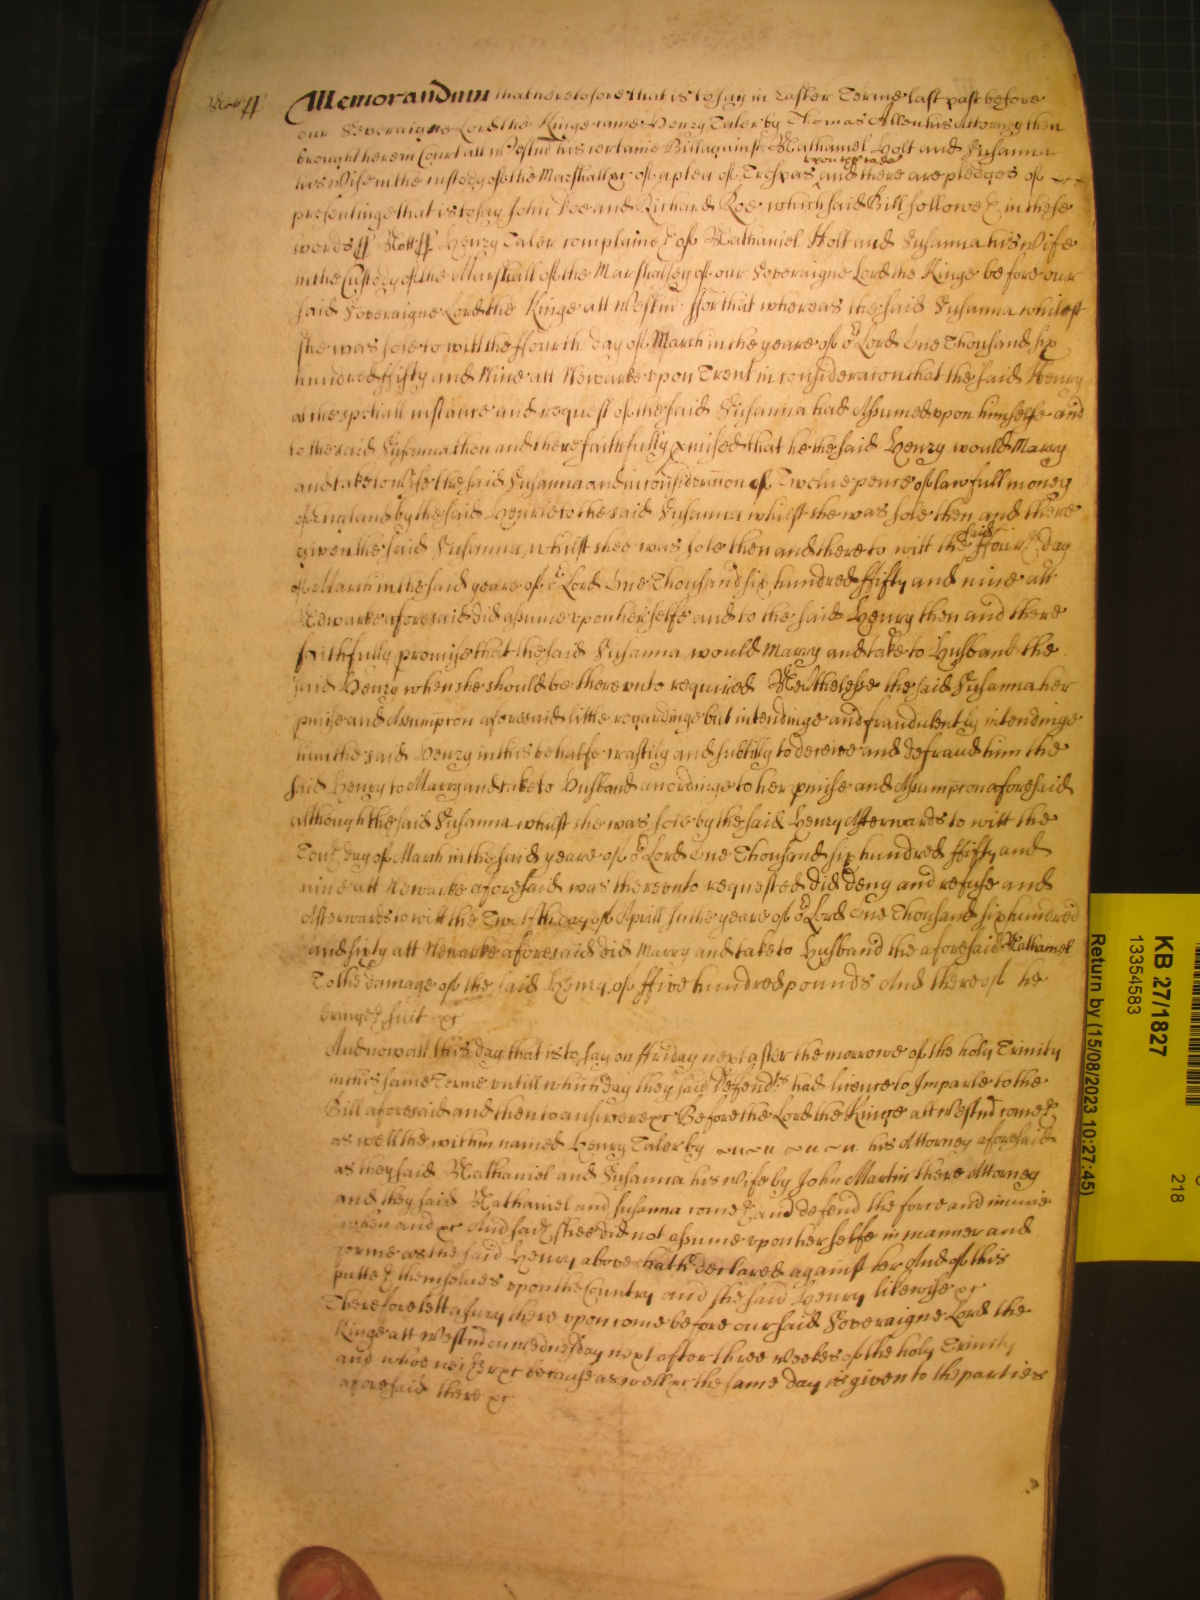 Nott ss Memorandum that heretofore that is to say in Easter Terme last past before
our Soveraigne Lord the Kinge came Henry Taler by Thomas Allen his Attorney then
brought here in Court att Westmr his certaine Bill against Nathaniel Holt and Susanna
upon the case
his Wife in the custody of the Marshall &c of a plea of Trespas and there are pledges of
prosentinge that is to say John Doe and Richard Roe which said Bill followeth in these
words ss Nott ss Henry Taler complaineth of Nathaniel Holt and Susanna his Wife
in the Custody of the Marshall of the Marshalsey of our Soveraigne Lord the Kinge before our
said Soveraigne Lord the Kinge att Westmr ffor that whereas the said Susanna whilest
she was sole to witt the ffourth day of March in the yeare of or Lord One Thousand six
hundred ffifty and Nine att Newarke upon Trent in consideracion that the said Henry
at the speciall instance and request of the said Susanna had Assumed upon himselfe and
to the said Susanna then and there faithfully pmised that he the said Henry would Marry
and take to Wife the said Susanna and in consideracion of Twelve pence of lawfull money
of England by the said Henrie to the said Susanna whilst she was sole then and there
said
given the said Susanna whilst shee was sole then and there to witt the ffourth day
of March in the said yeare of or Lord One Thousand six hundred ffifty and nine att
Newarke aforesaid did assume upon her selfe and to the said Henry then and there
faithfully promise that the said Susanna would Marry and take to Husband the
said Henry when she should be thereunto required Nevtheless the said Susanna her
pmise and Assumpcon aforesaid little regardinge but intendinge and fraudulently intendinge
him the said Henry in this behalfe craftily and subtilly to deceive and defraud him the
said Henry to Marry and take to Husband accordinge to her pmise and Assumpcon aforesaid
although the said Susanna whilst she was sole by the said Henry Afterwards to witt the
Tenth day of March in the said yeare of or Lord One Thousand six hundred ffifty and
nine att Newarke aforesaid was thereunto requested did deny and refuse and
Afterwards to witt the Twelfth day of Aprill In the yeare of or Lord One Thousand six hundred
and sixty att Newarke aforesaid did Marry and take to Husband the aforesaid Nathaniel
To the damage of the said Henry of ffive hundred pounds And thereof he
bringeth suit &c
And now att this day that is to say on ffriday next after the morrowe of the holy Trinity
in this same Terme untill which day they said Defendts had licence to Imparle to the
Bill aforesaid and then to answere &c Before the Lord the Kinge att Westmr cometh
as well the within named Henry Taler by his Attorney aforesaid
as they said Nathaniel and Susanna his Wife by John Martin there Attorney
and they said Nathaniel and Susanna cometh and defend the force and iniurie
when and &c And saith shee did not assume upon her selfe in manner and
forme as the said Henry above hath declared against her And of this
putteth themselves upon the Country and the said Henry likewise &c
Therefore lett a Jury there upon come before our said Soveraigne Lord the
Kinge att Westmr on Wednesday next after three Weekes of the holy Trinity
and whoe neither &c because as well &c the same day is given to the parties
aforesaid there &c
KB 27/1827
13354583
218
Return by (15/08/2023 10:27:45)